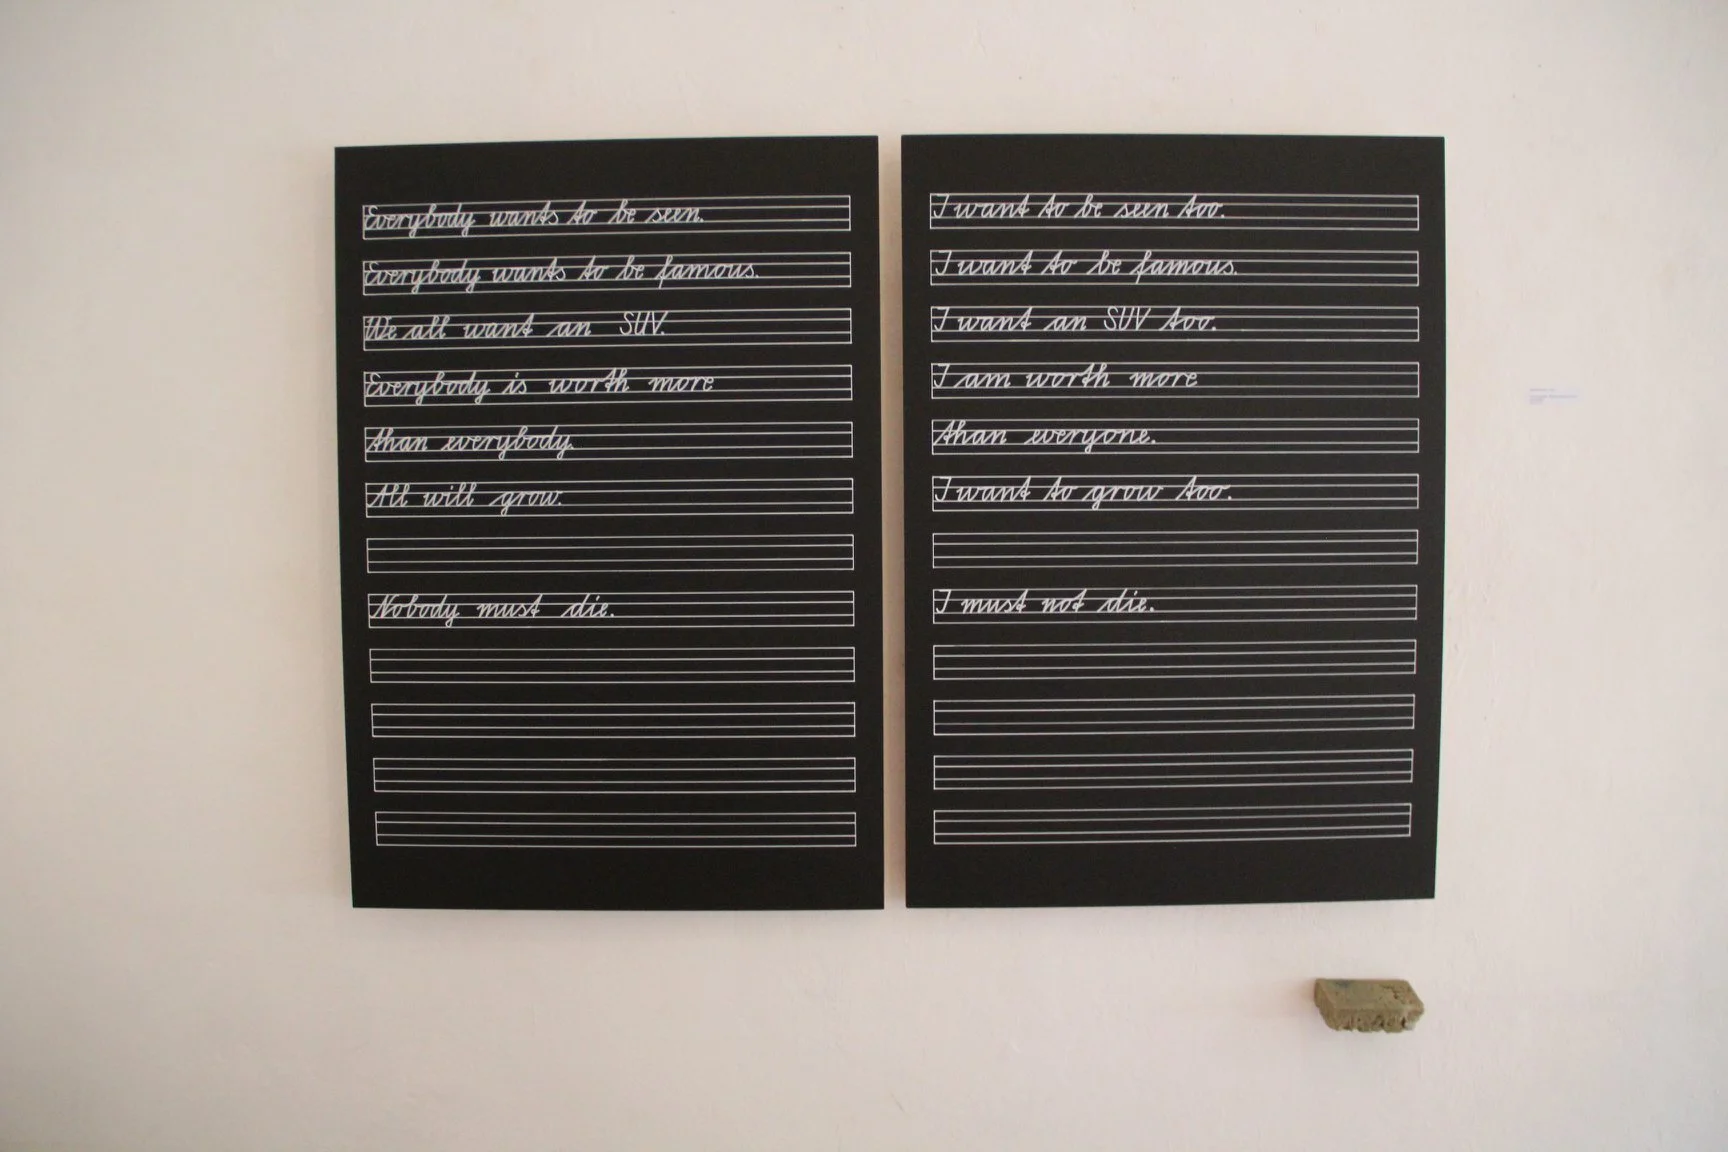 Everybody wants to be seen.
Everybody wants to be famous.
We all want an SUV.
Everybody is worth more
than everybody.
All will grow.
Nobody must die.
I want to be seen too.
I want to be famous.
I want an SUV too.
I am worth more
than everyone.
I want to grow too.
I must not die.